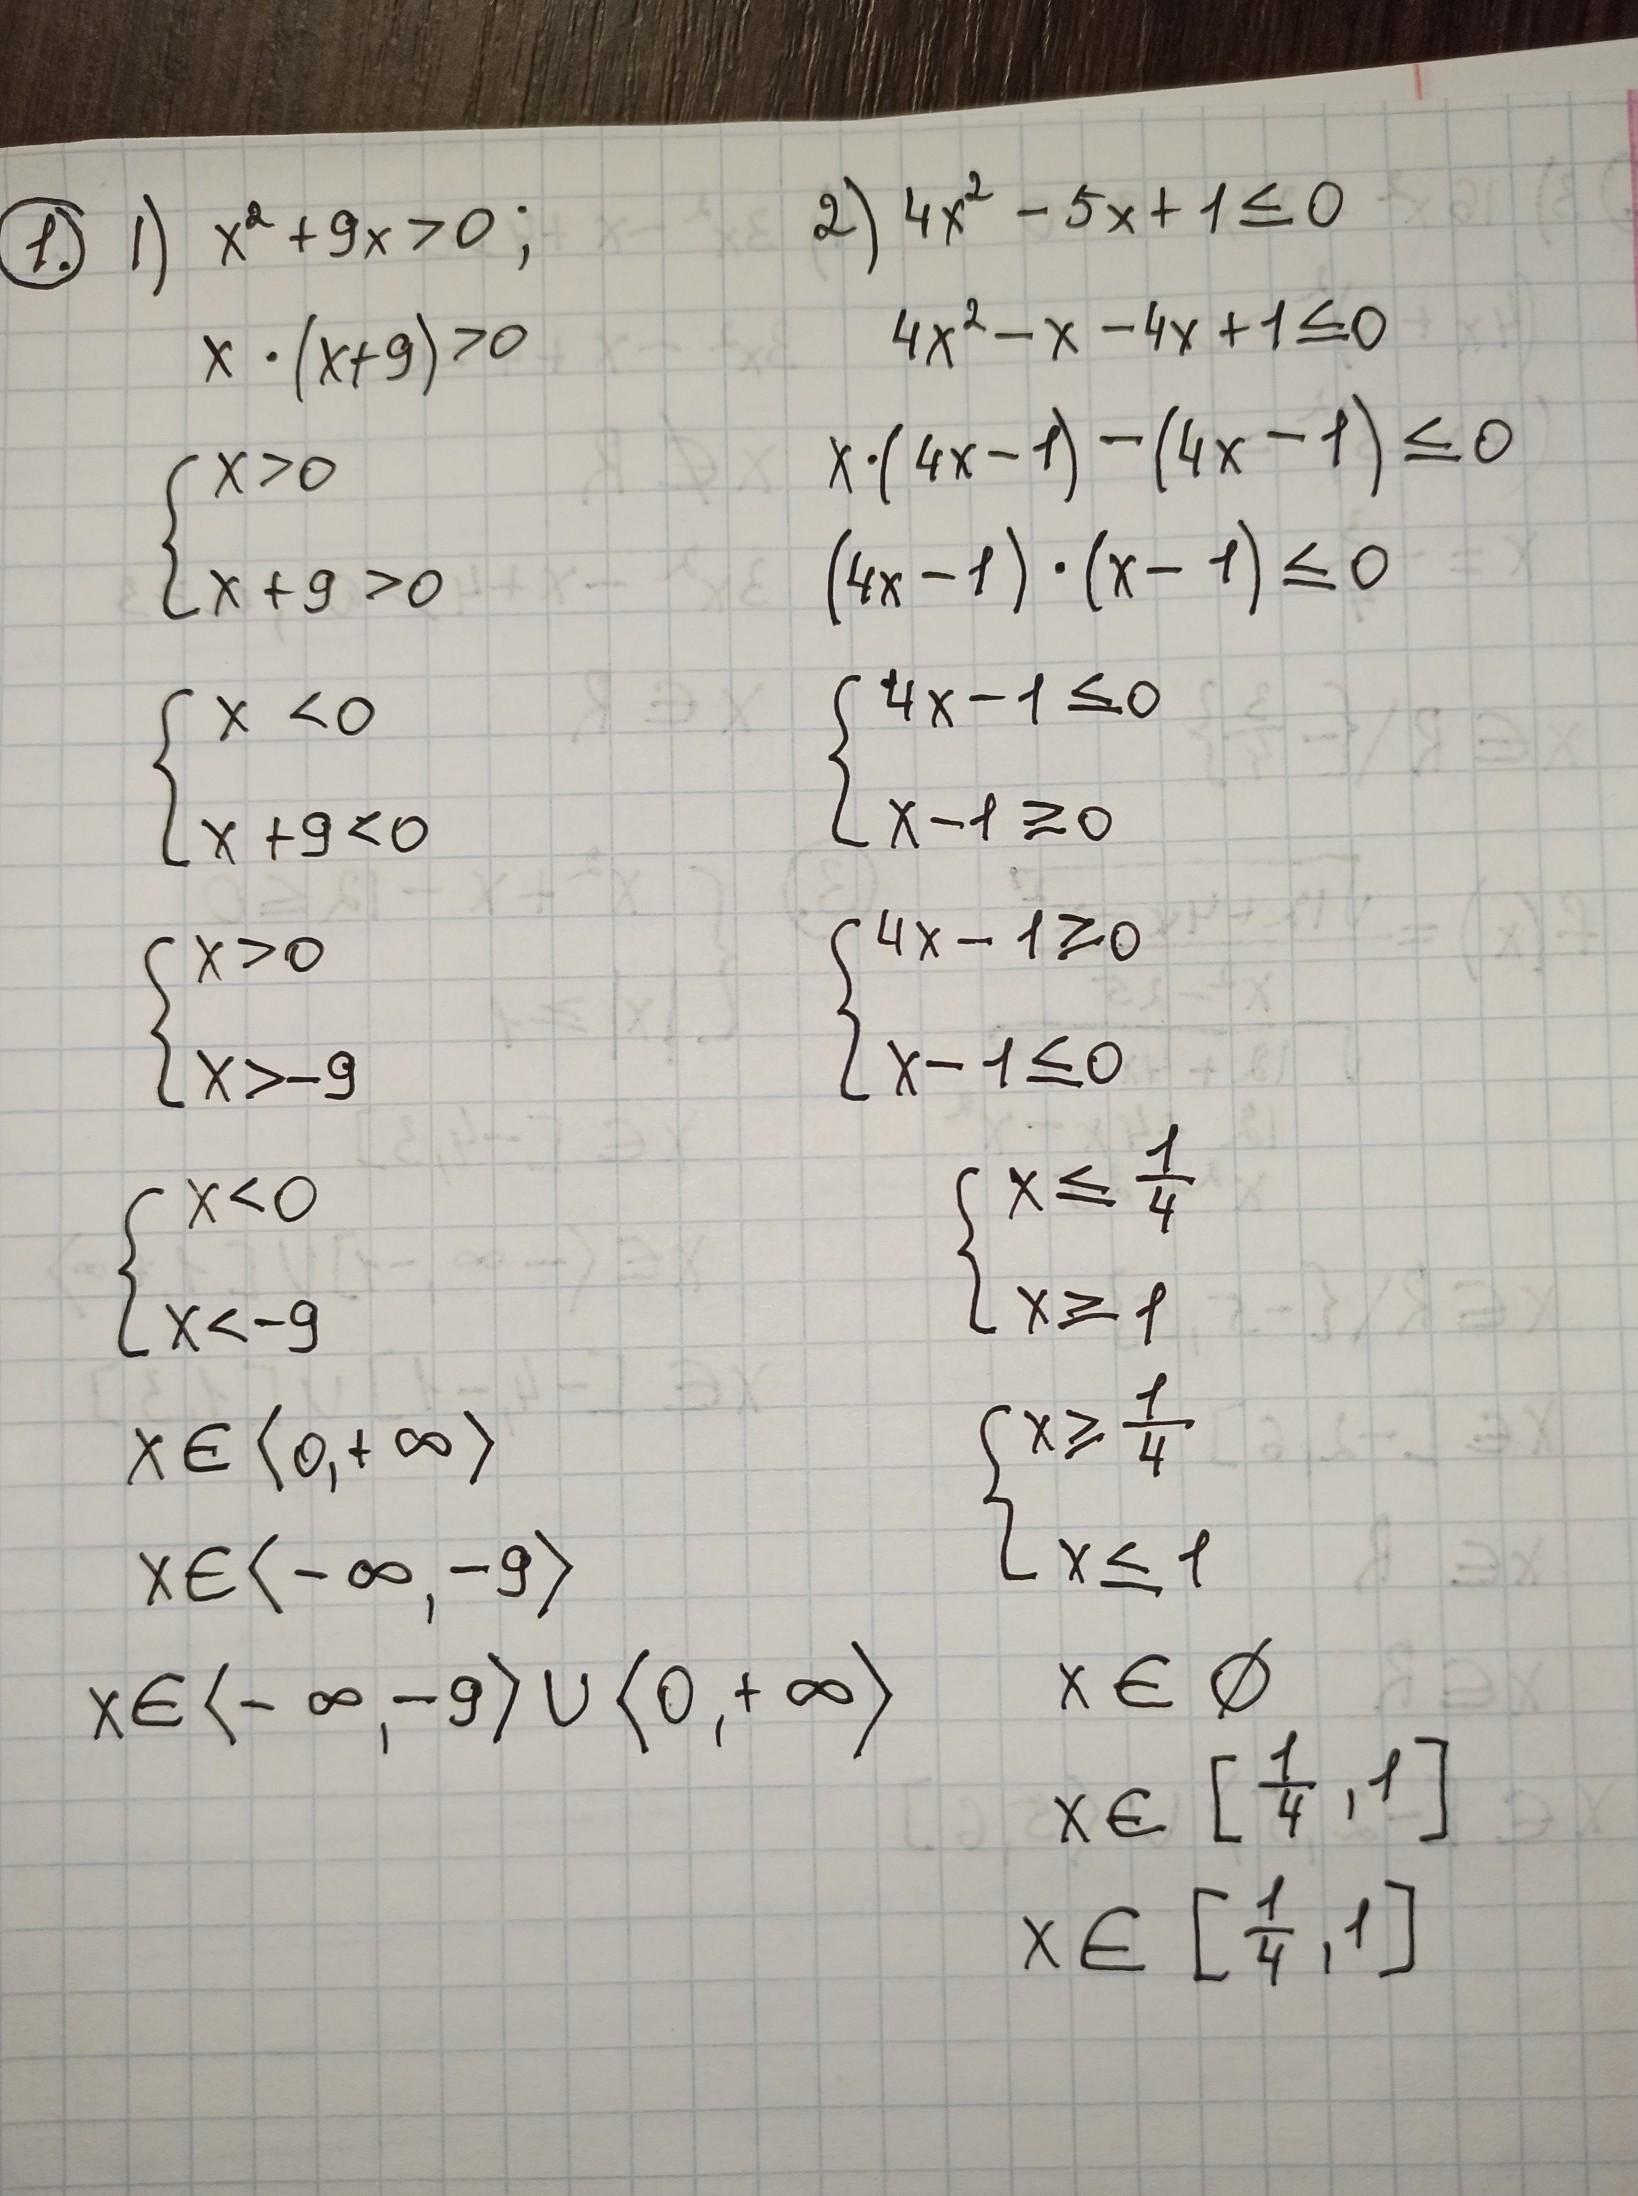 1. 1) x² + 9x > 0;
x · (x+9) > 0
{ x > 0
x + 9 > 0
{ x < 0
x + 9 < 0
{ x > 0
x > -9
{ x < 0
x < -9
x ∈ ⟨0, +∞⟩
x ∈ ⟨-∞, -9⟩
x ∈ ⟨-∞, -9⟩ ∪ ⟨0, +∞⟩
2) 4x² - 5x + 1 ≤ 0
4x² - x - 4x + 1 ≤ 0
x · (4x - 1) - (4x - 1) ≤ 0
(4x - 1) · (x - 1) ≤ 0
{ 4x - 1 ≤ 0
x - 1 ≥ 0
{ 4x - 1 ≥ 0
x - 1 ≤ 0
{ x ≤ 1/4
x ≥ 1
{ x ≥ 1/4
x ≤ 1
x ∈ ∅
x ∈ [1/4, 1]
x ∈ [1/4, 1]